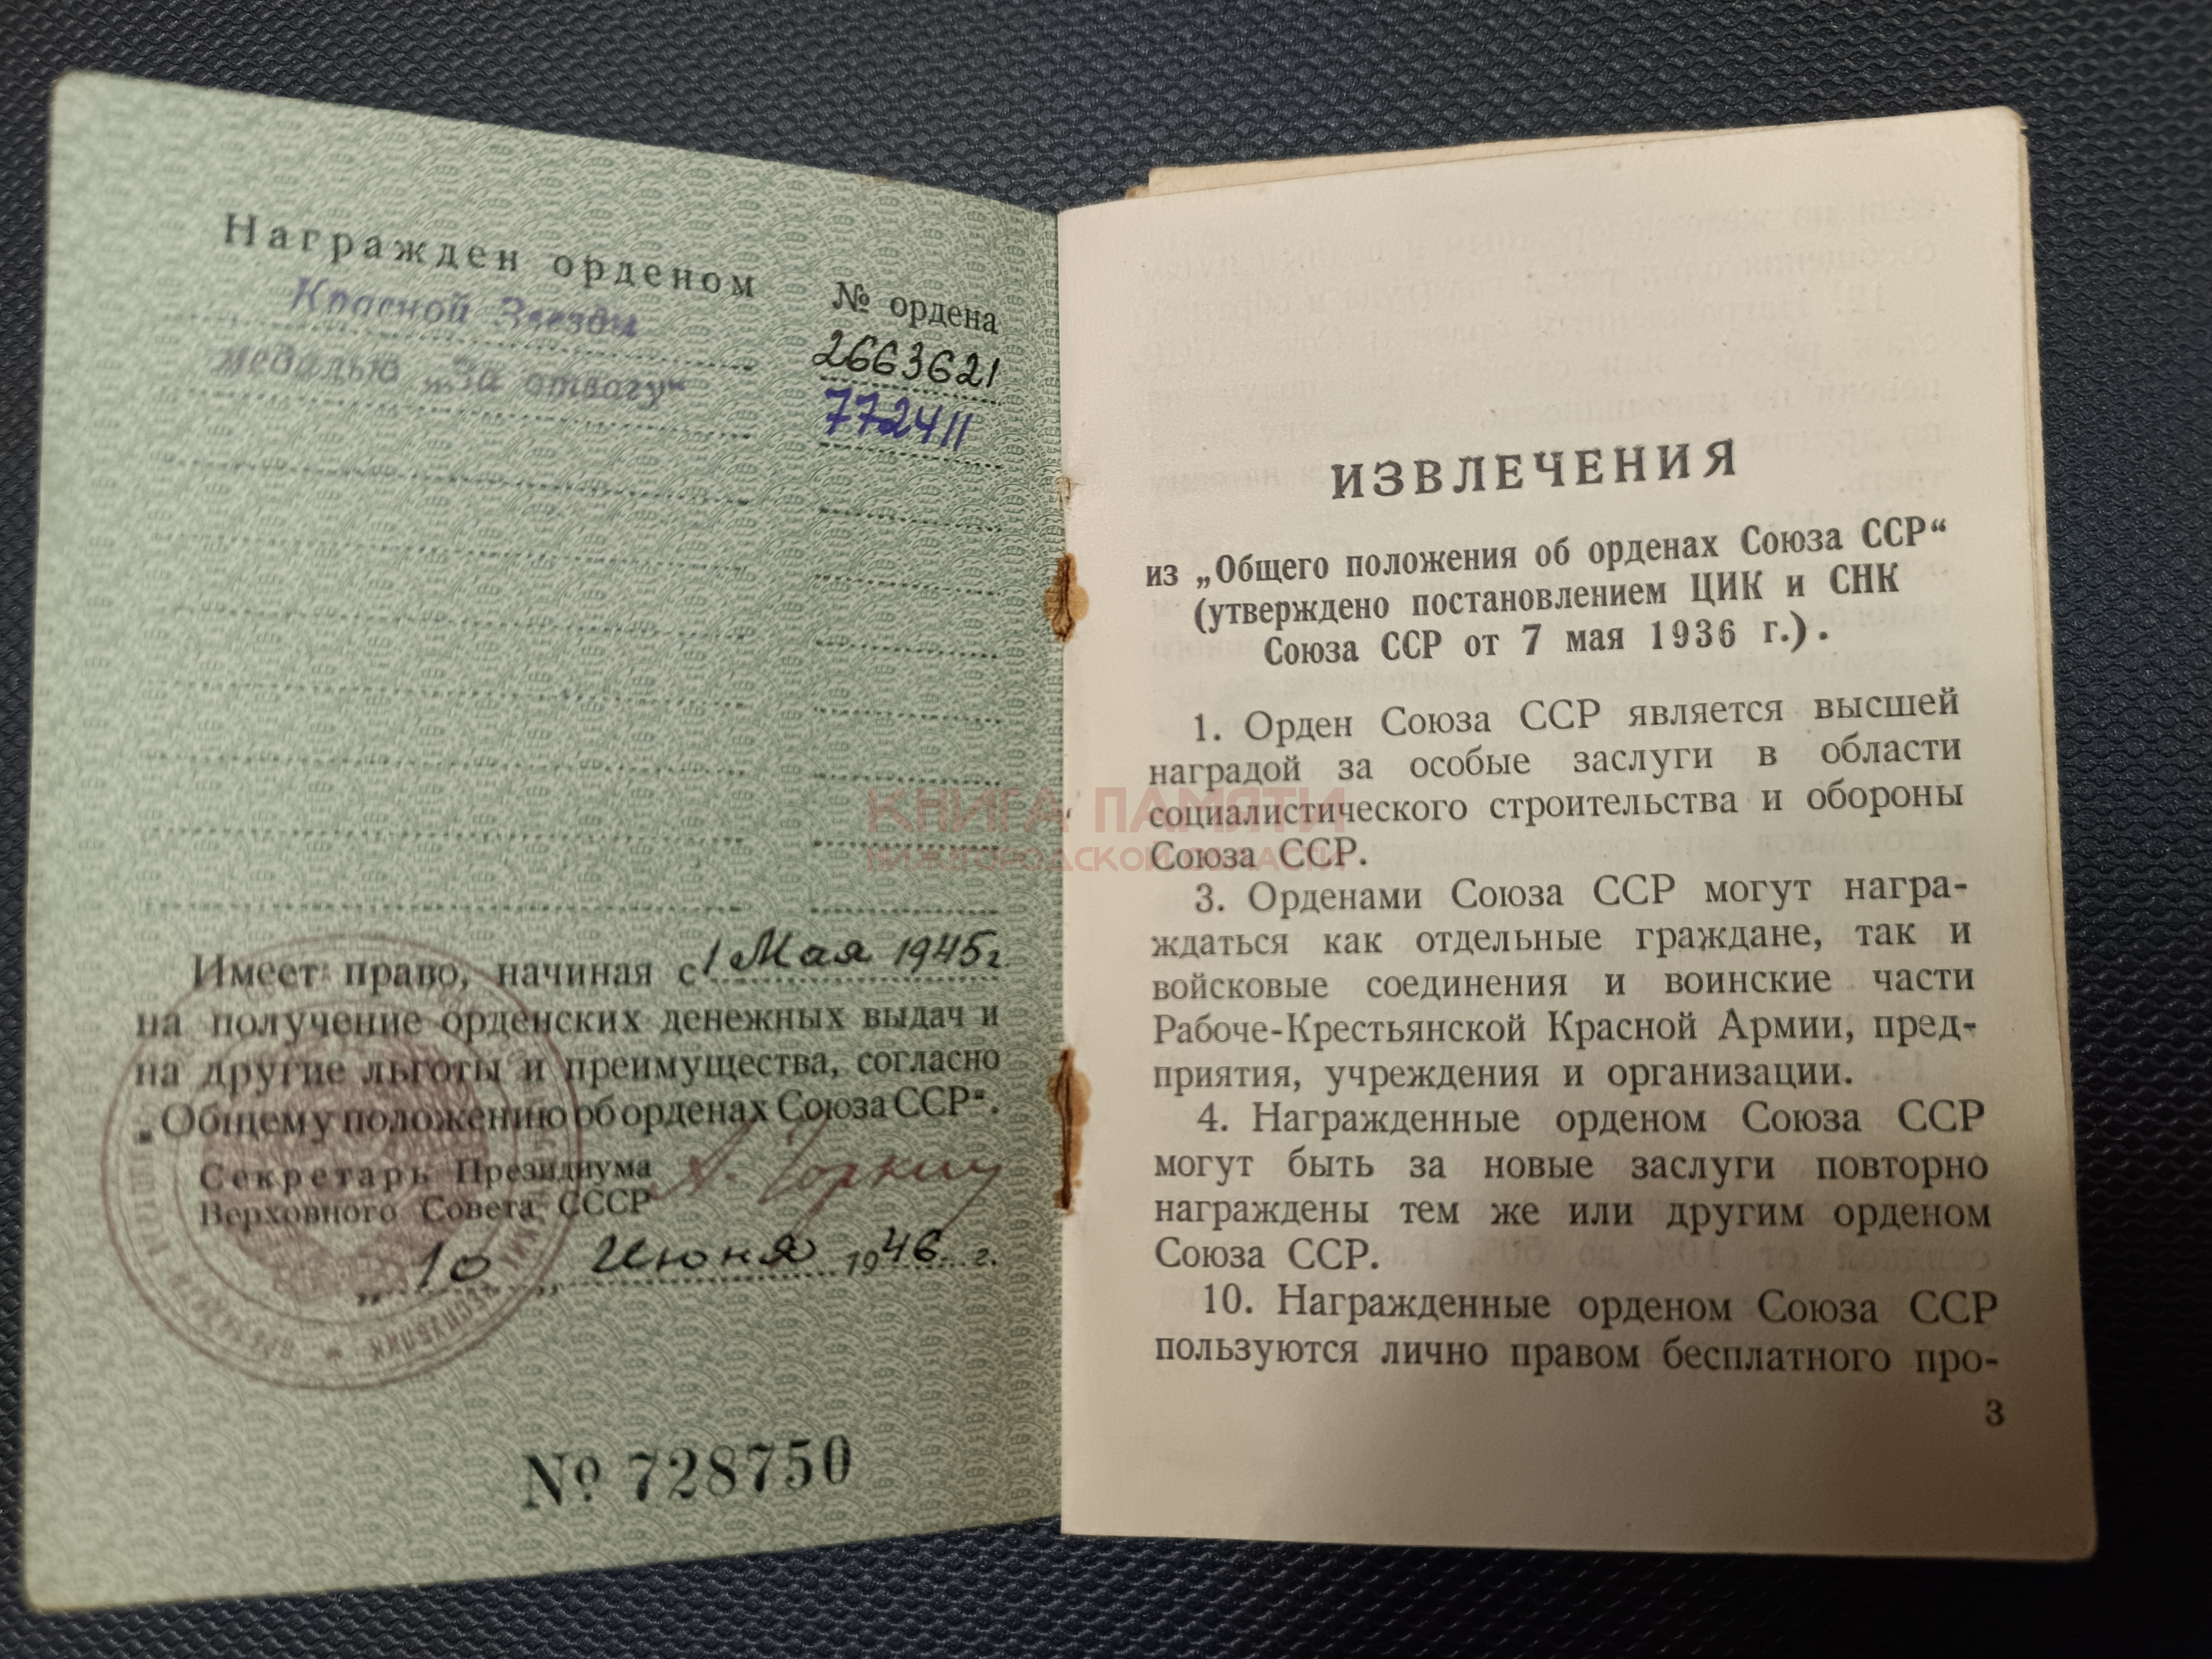 Награжден орденом
№ ордена
Красной Звезды
2663621
медалью „За отвагу“
772411
Имеет право, начиная с 1 Мая 1945 г.
на получение орденских денежных выдач и
на другие льготы и преимущества, согласно
„Общему положению об орденах Союза ССР“.
Секретарь Президиума
Верховного Совета СССР
А. Горкин
„10„ Июня 1946 г.
№ 728750
ИЗВЛЕЧЕНИЯ
из „Общего положения об орденах Союза ССР“
(утверждено постановлением ЦИК и СНК
Союза ССР от 7 мая 1936 г.).
1. Орден Союза ССР является высшей
наградой за особые заслуги в области
социалистического строительства и обороны
Союза ССР.
3. Орденами Союза ССР могут награ-
ждаться как отдельные граждане, так и
войсковые соединения и воинские части
Рабоче-Крестьянской Красной Армии, пред-
приятия, учреждения и организации.
4. Награжденные орденом Союза ССР
могут быть за новые заслуги повторно
награждены тем же или другим орденом
Союза ССР.
10. Награжденные орденом Союза ССР
пользуются лично правом бесплатного про-
3
КНИГА ПАМЯТИ
НИЖЕГОРОДСКОЙ ОБЛАСТИ